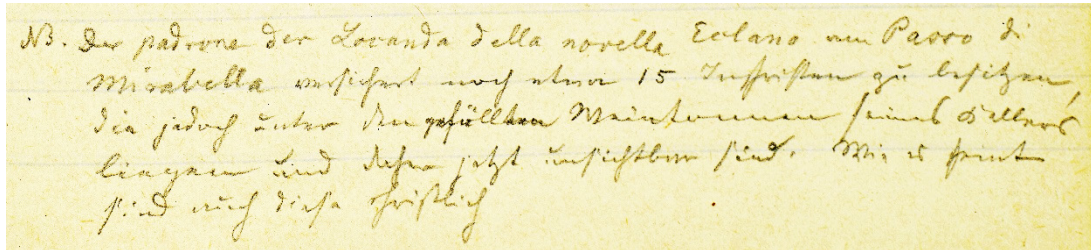 NB. Der padrone der Locanda della novella Eclano am Passo di
Mirabella versichert noch etwa 15 Inschriften zu besitzen,
die jedoch unter den gefüllten Weintonnen seines Kellers
liegen und daher jetzt unsichtbar sind. Wie es scheint
sind auch diese christlich